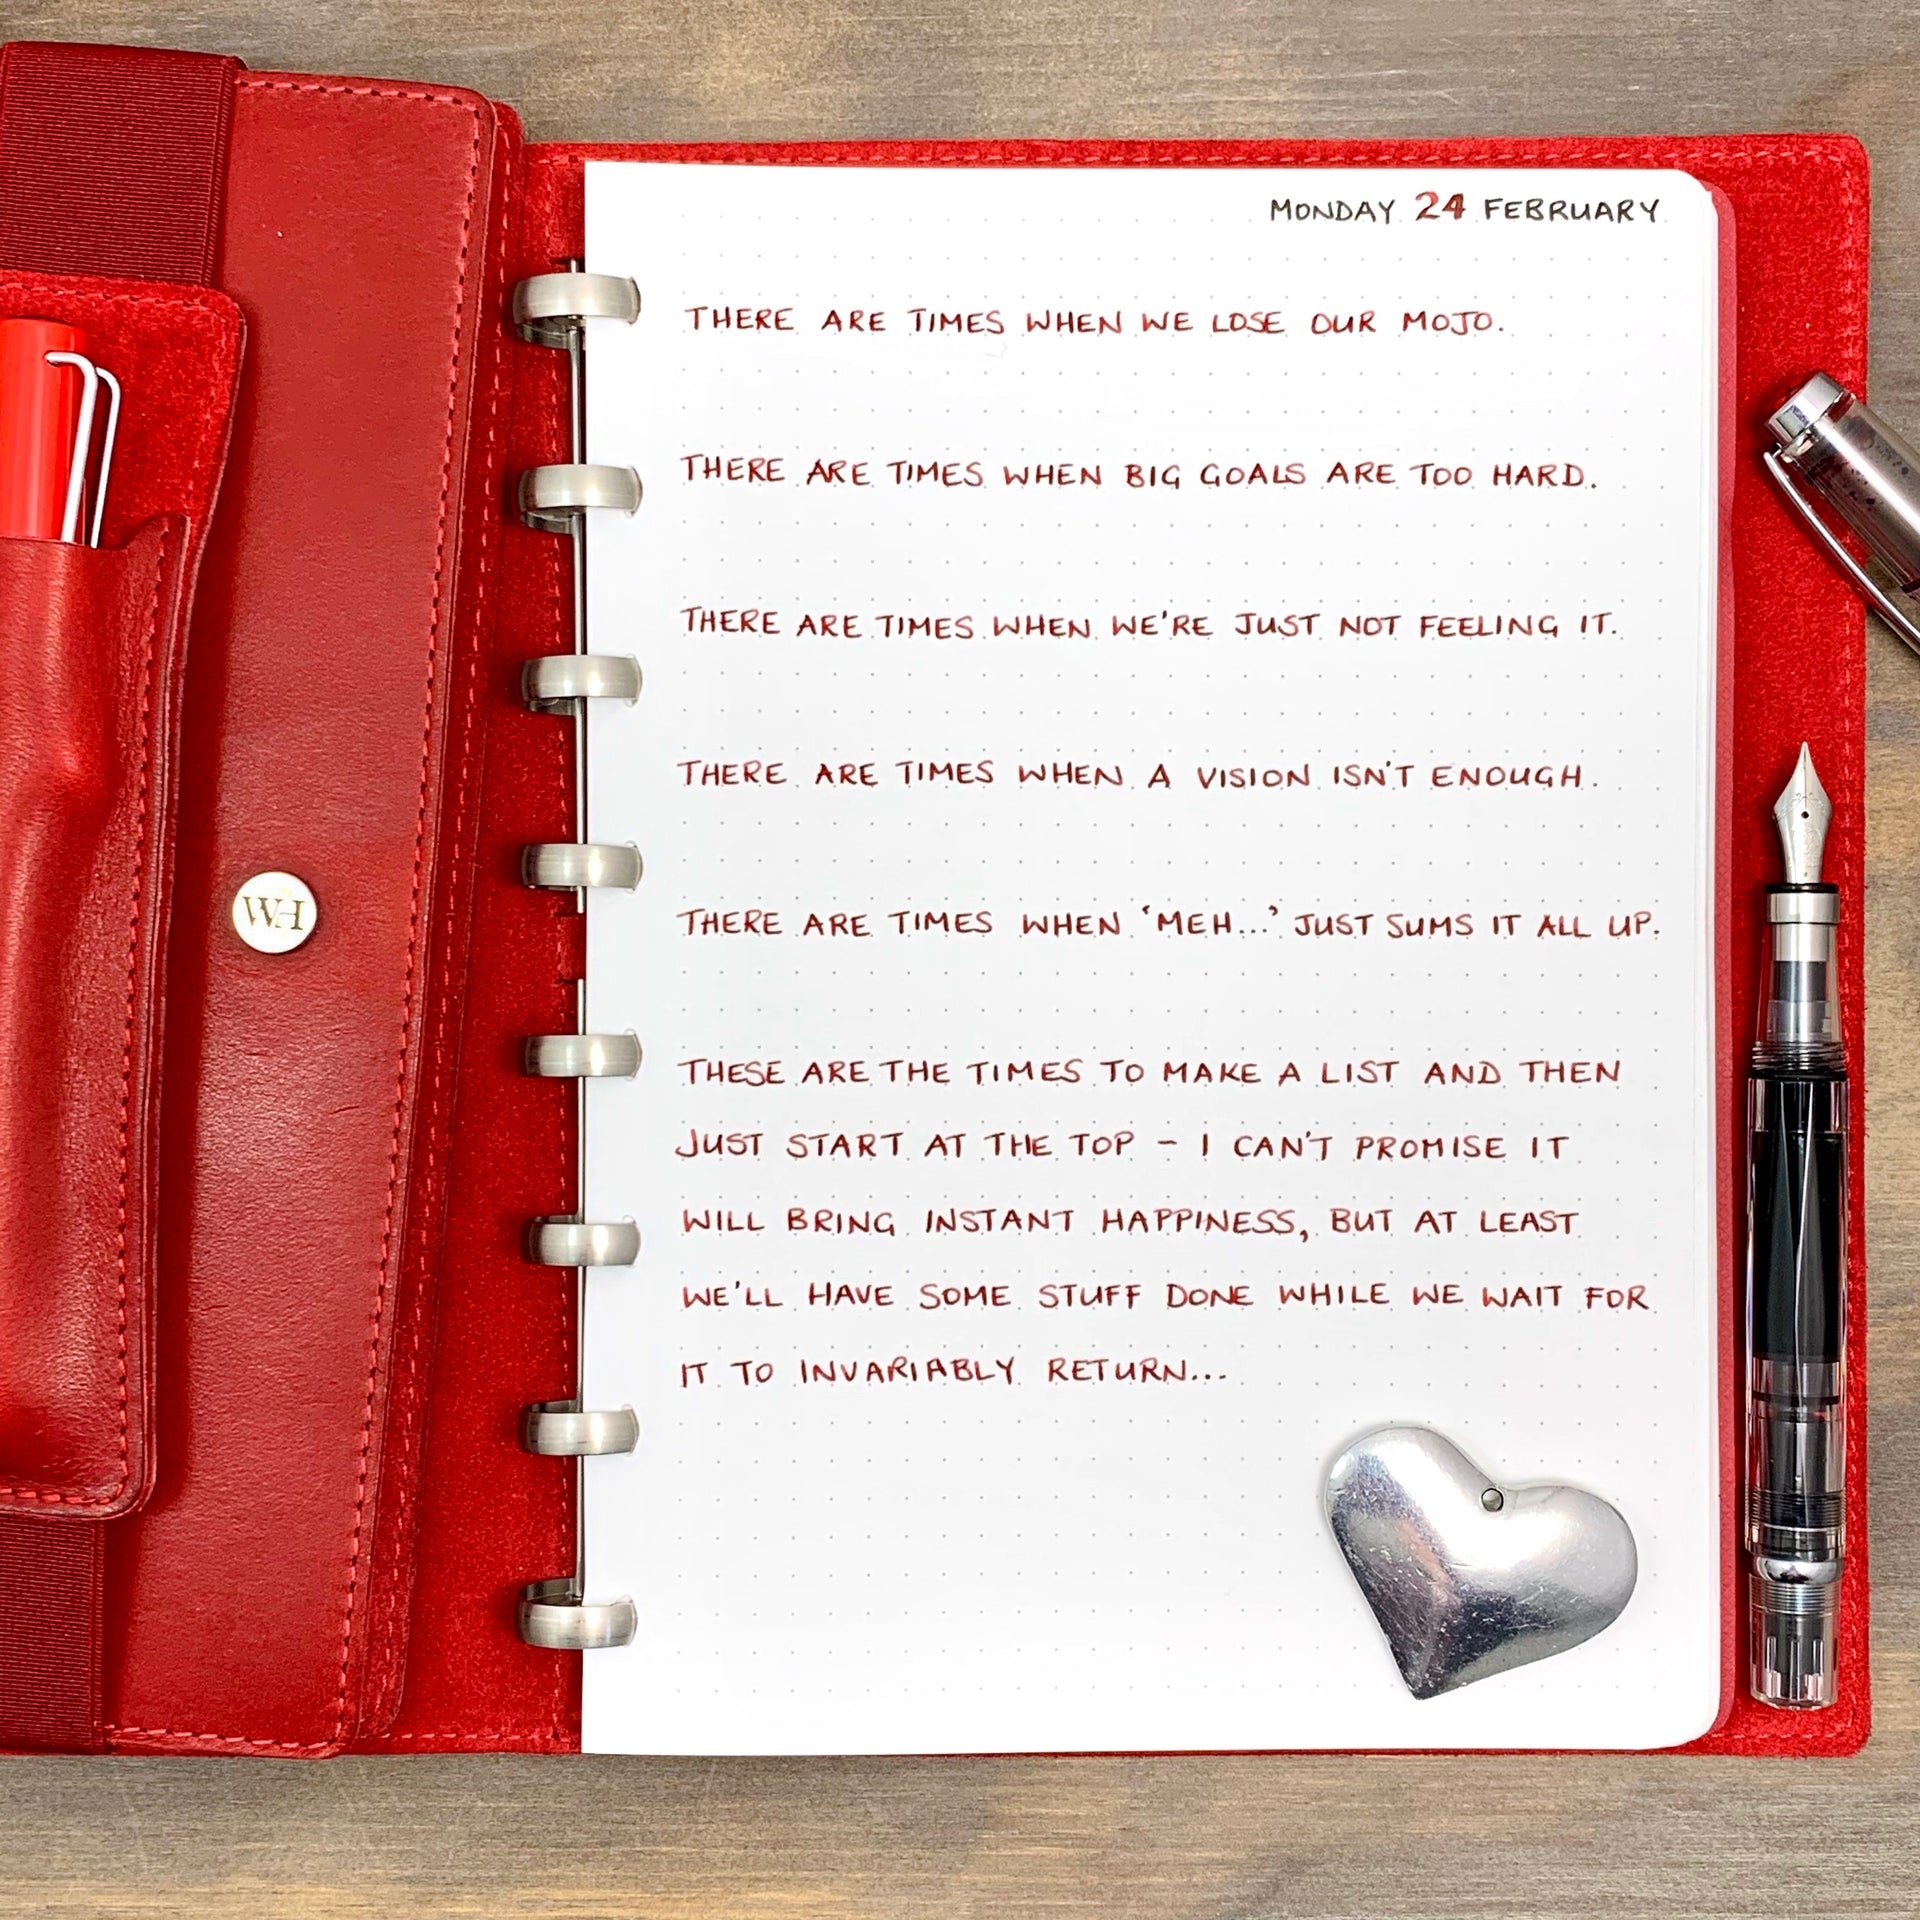 MONDAY 24 FEBRUARY
THERE ARE TIMES WHEN WE LOSE OUR MOJO.
THERE ARE TIMES WHEN BIG GOALS ARE TOO HARD.
THERE ARE TIMES WHEN WE'RE JUST NOT FEELING IT.
THERE ARE TIMES WHEN A VISION ISN'T ENOUGH.
THERE ARE TIMES WHEN 'MEH...' JUST SUMS IT ALL UP.
THESE ARE THE TIMES TO MAKE A LIST AND THEN
JUST START AT THE TOP – I CAN'T PROMISE IT
WILL BRING INSTANT HAPPINESS, BUT AT LEAST
WE'LL HAVE SOME STUFF DONE WHILE WE WAIT FOR
IT TO INVARIABLY RETURN...
WH